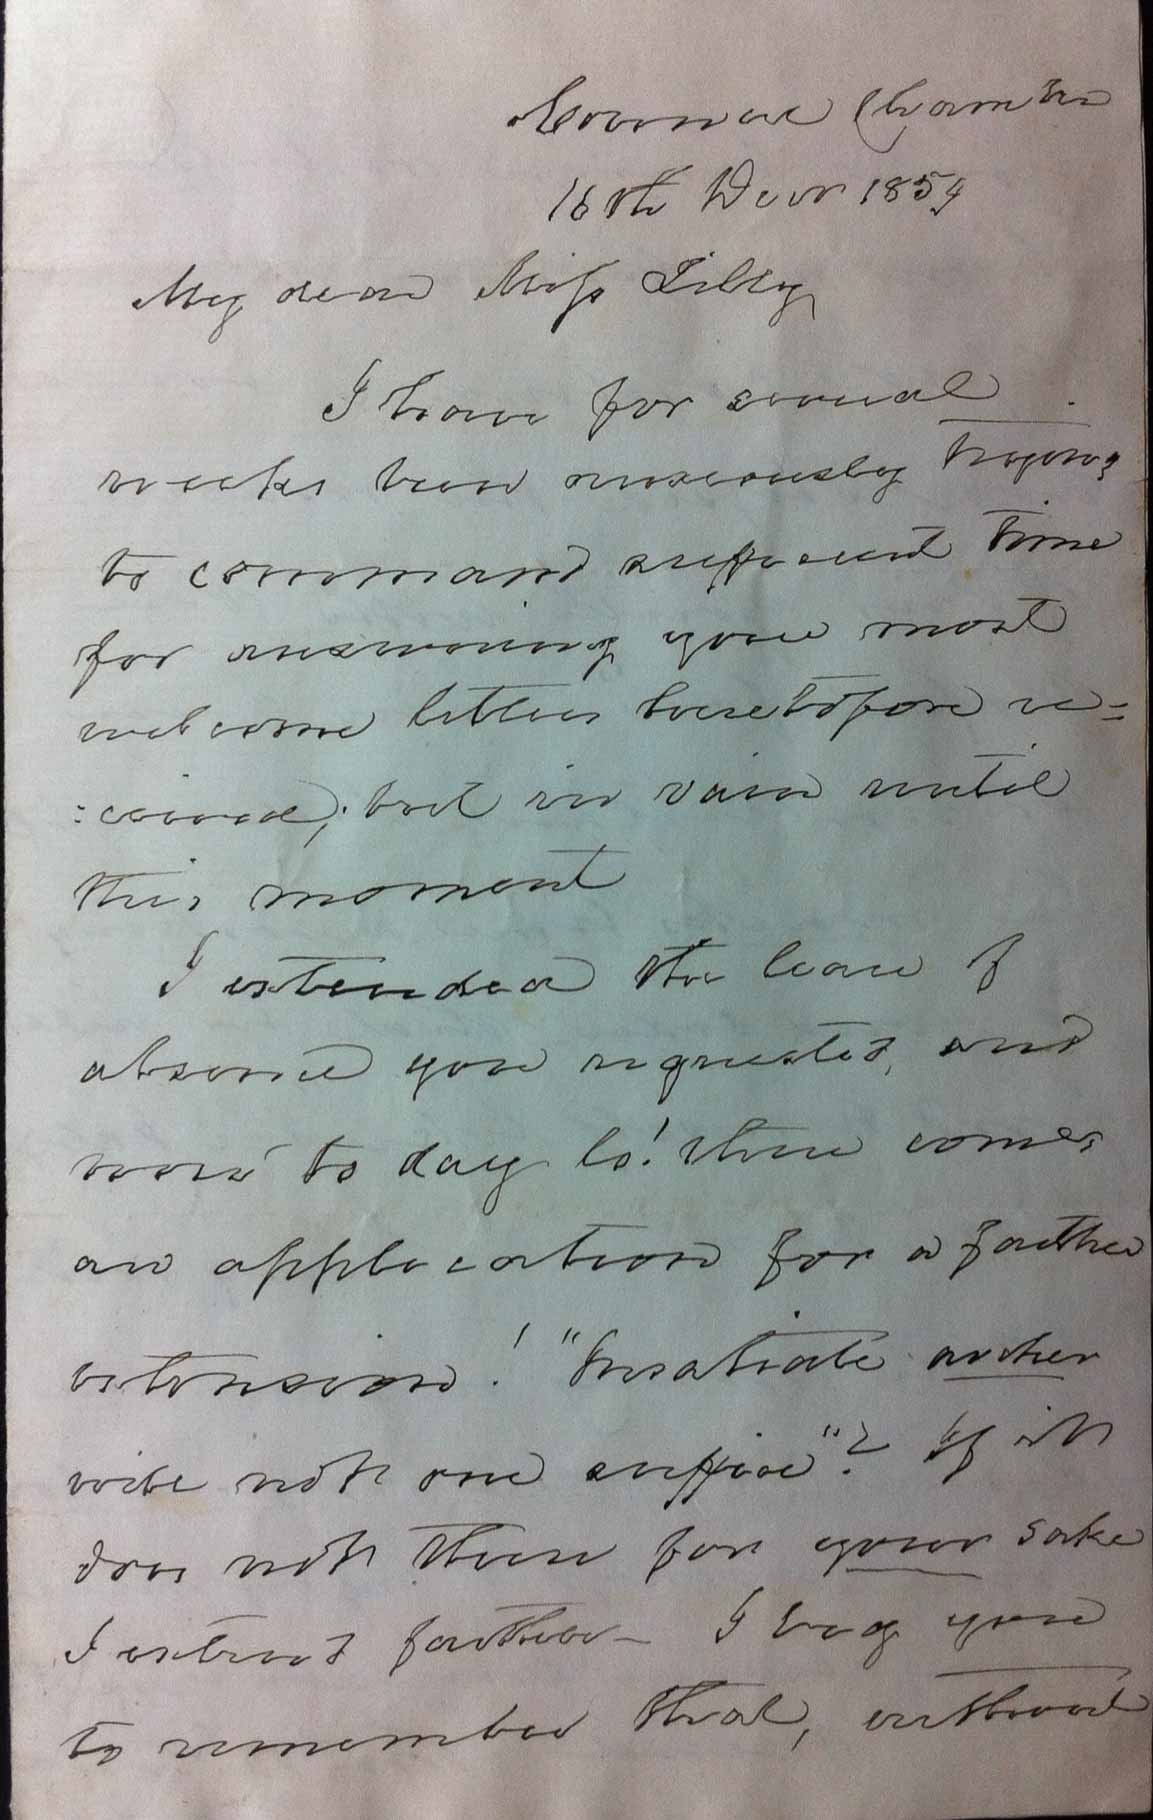 Council Chamber
16th Decr 1854
My dear Miss Libby,
I have for several
weeks been anxiously trying
to command sufficient time
for answering your most
welcome letters heretofore re=
:ceived; but in vain until
this moment
I extended the leave of
absence you requested, and
now to day lo! there comes
an application for a farther
extension! "Insatiate archer
will not one suffice"? If it
does not then for your sake
I extend farther — I beg you
to remember that, without